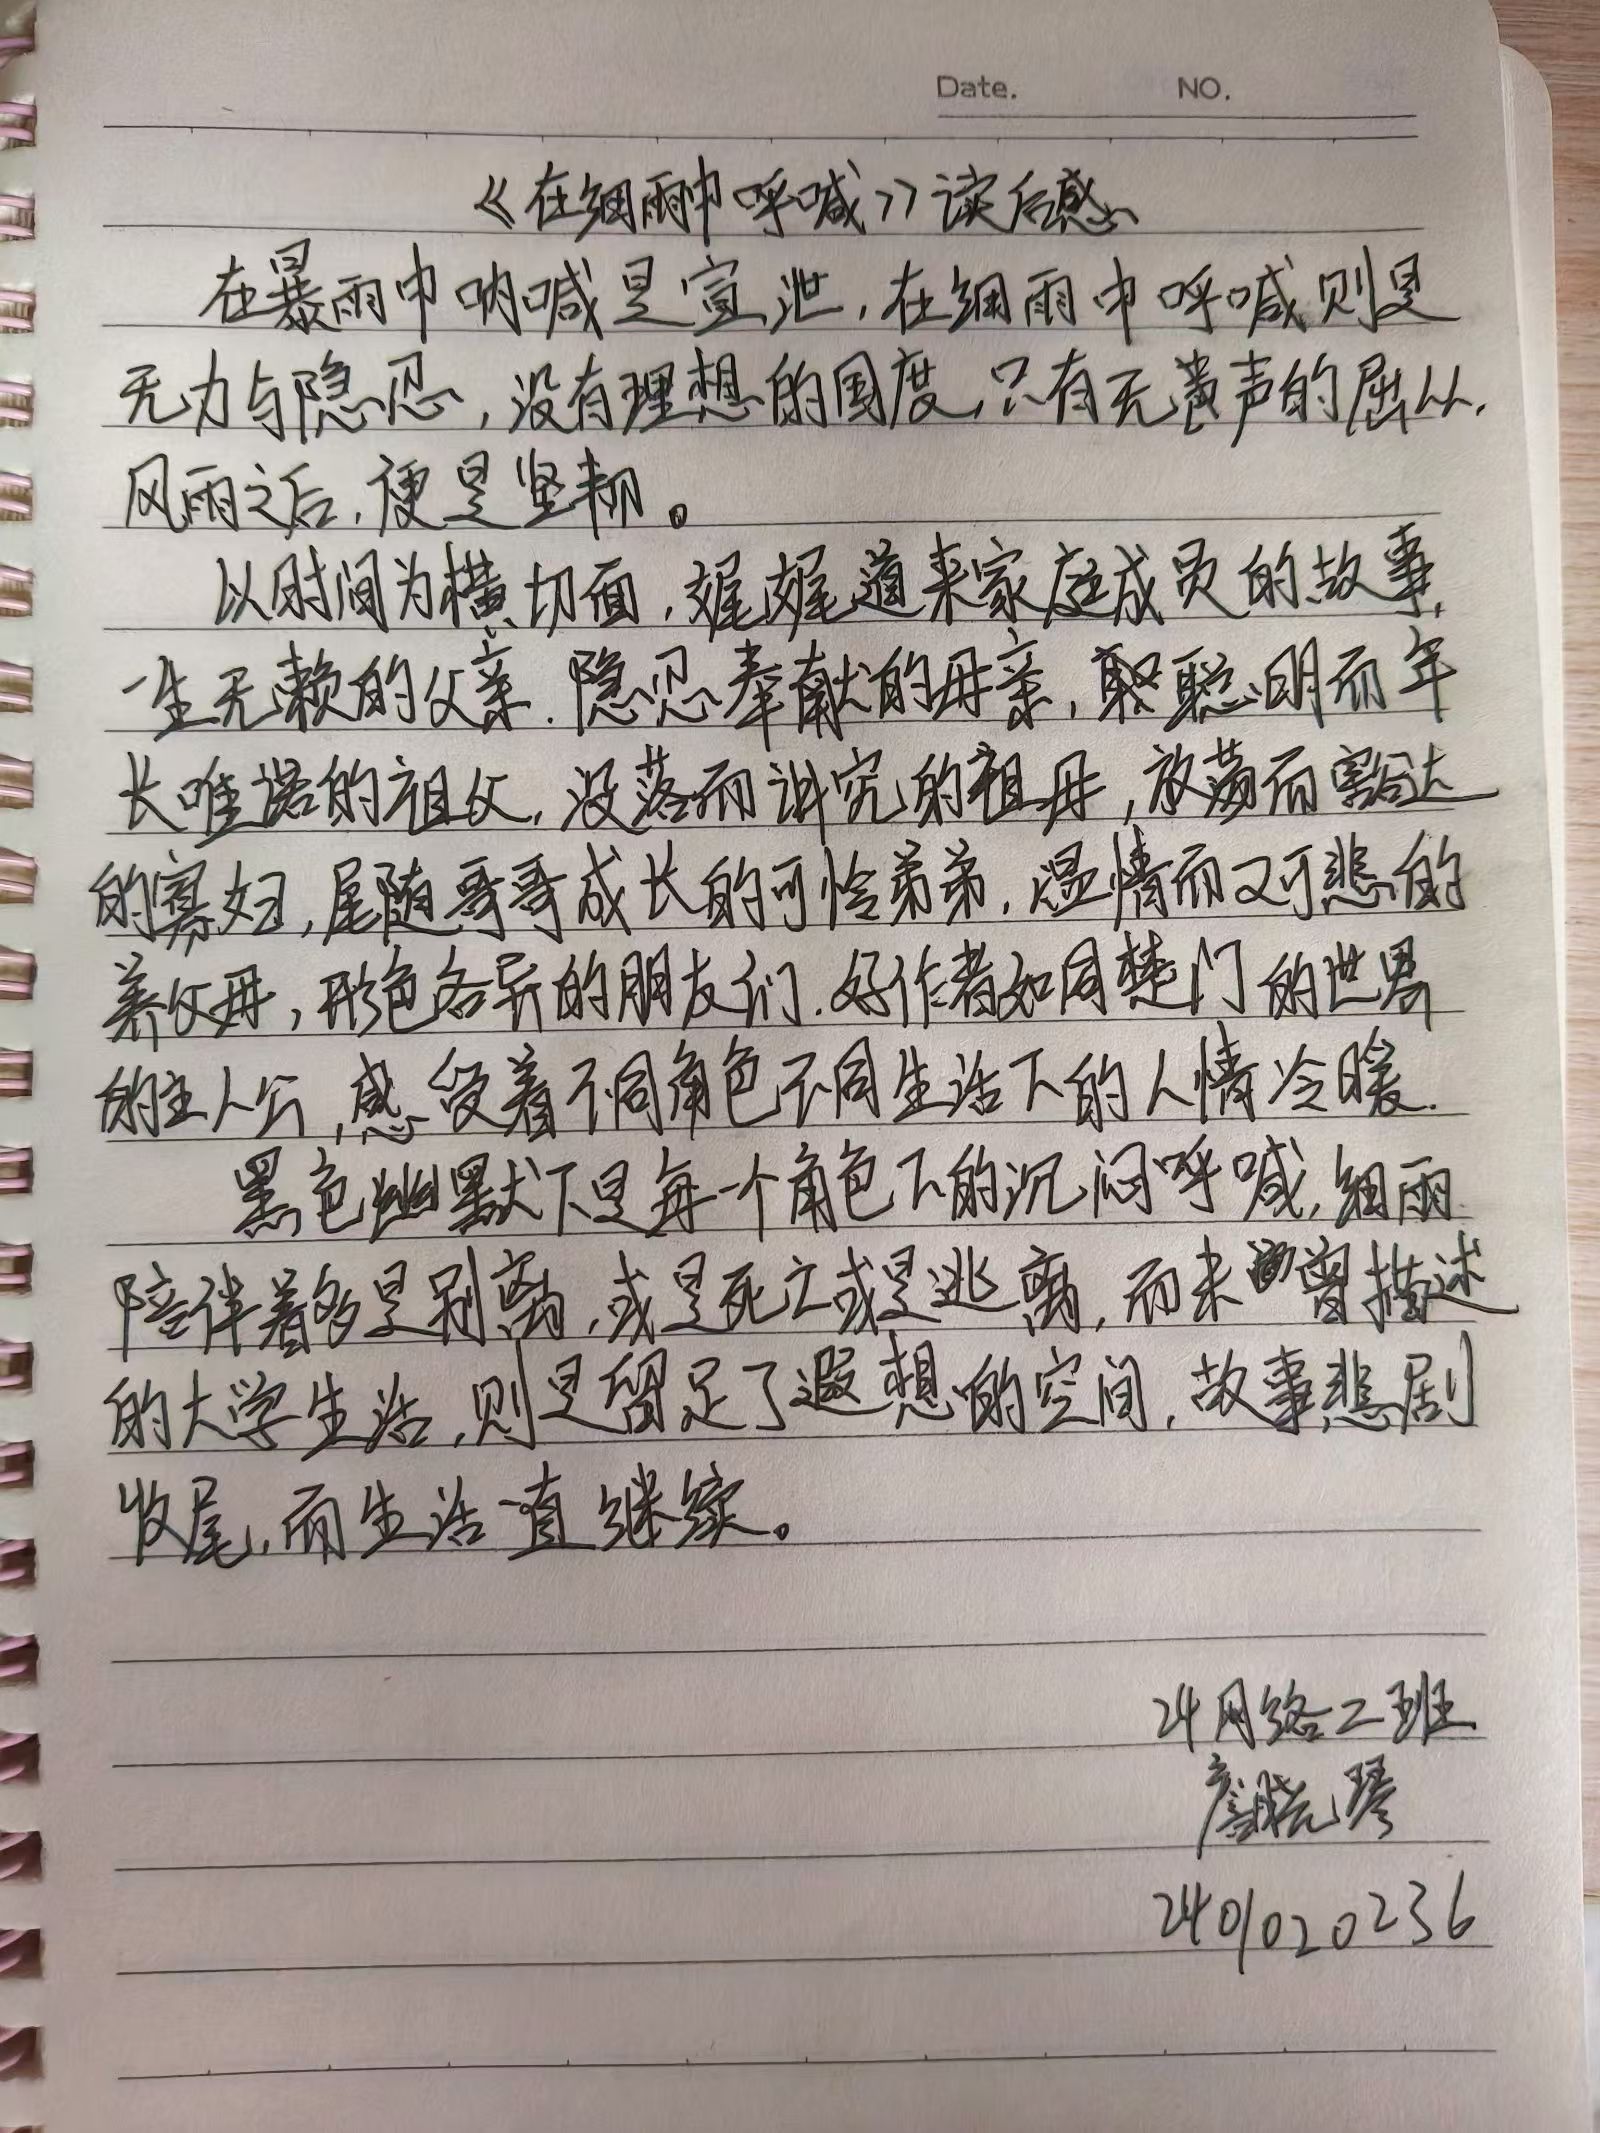 Date. NO.
《在细雨中呼喊》读后感
在暴雨中呐喊是宣泄，在细雨中呼喊则是
无力与隐忍，没有理想的国度，只有无声的屈从，
风雨之后，便是坚韧。
以时间为横切面，娓娓道来家庭成员的故事，
一生无赖的父亲．隐忍奉献的母亲，聪明而年
长唯诺的祖父，没落而讲究的祖母，放荡而豁达
的寡妇，尾随哥哥成长的可怜弟弟，温情而又可悲的
养父母，形色各异的朋友们．好作者如同楚门的世界
的主人公，感受着不同角色不同生活下的人情冷暖．
黑色幽默下是每一个角色下的沉闷呼喊，细雨
陪伴着多是别离，或是死亡或是逃离，而未曾描述
的大学生活，则是留足了遐想的空间，故事悲剧
收尾，而生活一直继续。
24网络二班
晓琴
2401020236